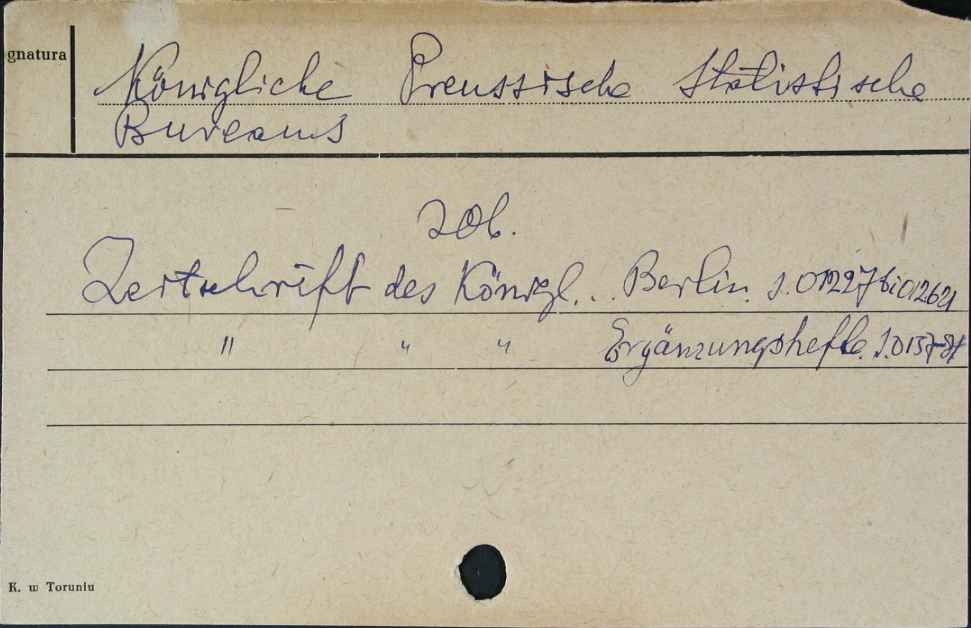 gnatura
Königliche Preussische Statistische
Bureaus
zob.
Zeitschrift des Königl... Berlin. s. 012276 i 012621
" " " Ergänzungshefte.
K. w Toruniu